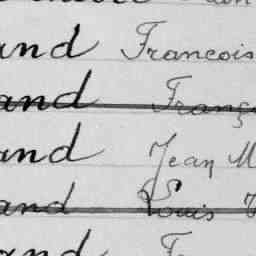 and Francois
and Franç
and Jean M
and Louis
and